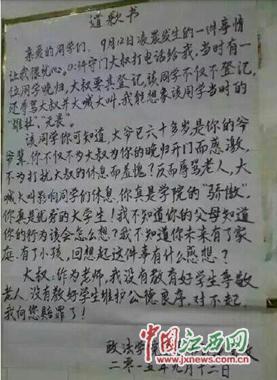 道歉书
亲爱的同学们，9月12日凌晨发生的一件事情
让我很忧心。0:1许守门大叔打电话给我，当时有一
位同学晚归，大叔要其登记，该同学不仅不登记，
还辱骂大叔并大喊大叫，我能想象该同学当时的
“雄壮、光荣”。
该同学你可知道，大爷已六十多岁是你的爷
爷辈，你不仅不为大叔为你的晚归开门而感激，
不为打扰大叔的休息而羞愧？反而辱骂老人，大
喊大叫影响同学们休息，你真是学院的“骄傲”。
你真是优秀的大学生！我不知道你的父母知道
你的行为该会怎么想？我不知道你未来有了家
庭，有了小孩，回想起这件事有什么感想？
大叔：作为老师，我没有教育好学生孝敬
老人，没有教好学生维护公德良序，对不起，
我向您赔罪了！
政法学院
人
二〇一五年九月十二日
中国江西网